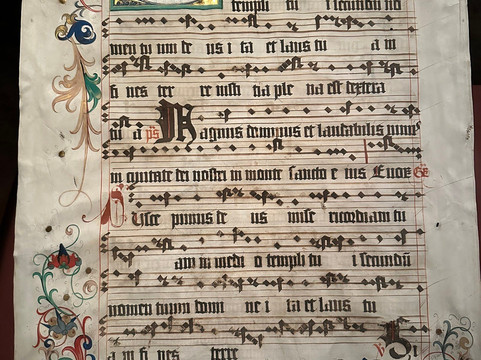 templi tu i secundu no
men tu um de us i ta et laus tu a in
fi nes ter re iusti tia ple na est dextera
tu a ps Magnus dominus et laudabilis nimis
in civitate dei nostri in monte sancto e ius Evoe Gr
Uscepimus de us mise ricordiam tu
am in medi o templi tu i secundu
nomen tuum domi ne i ta et laus tu
a in fi nes terre